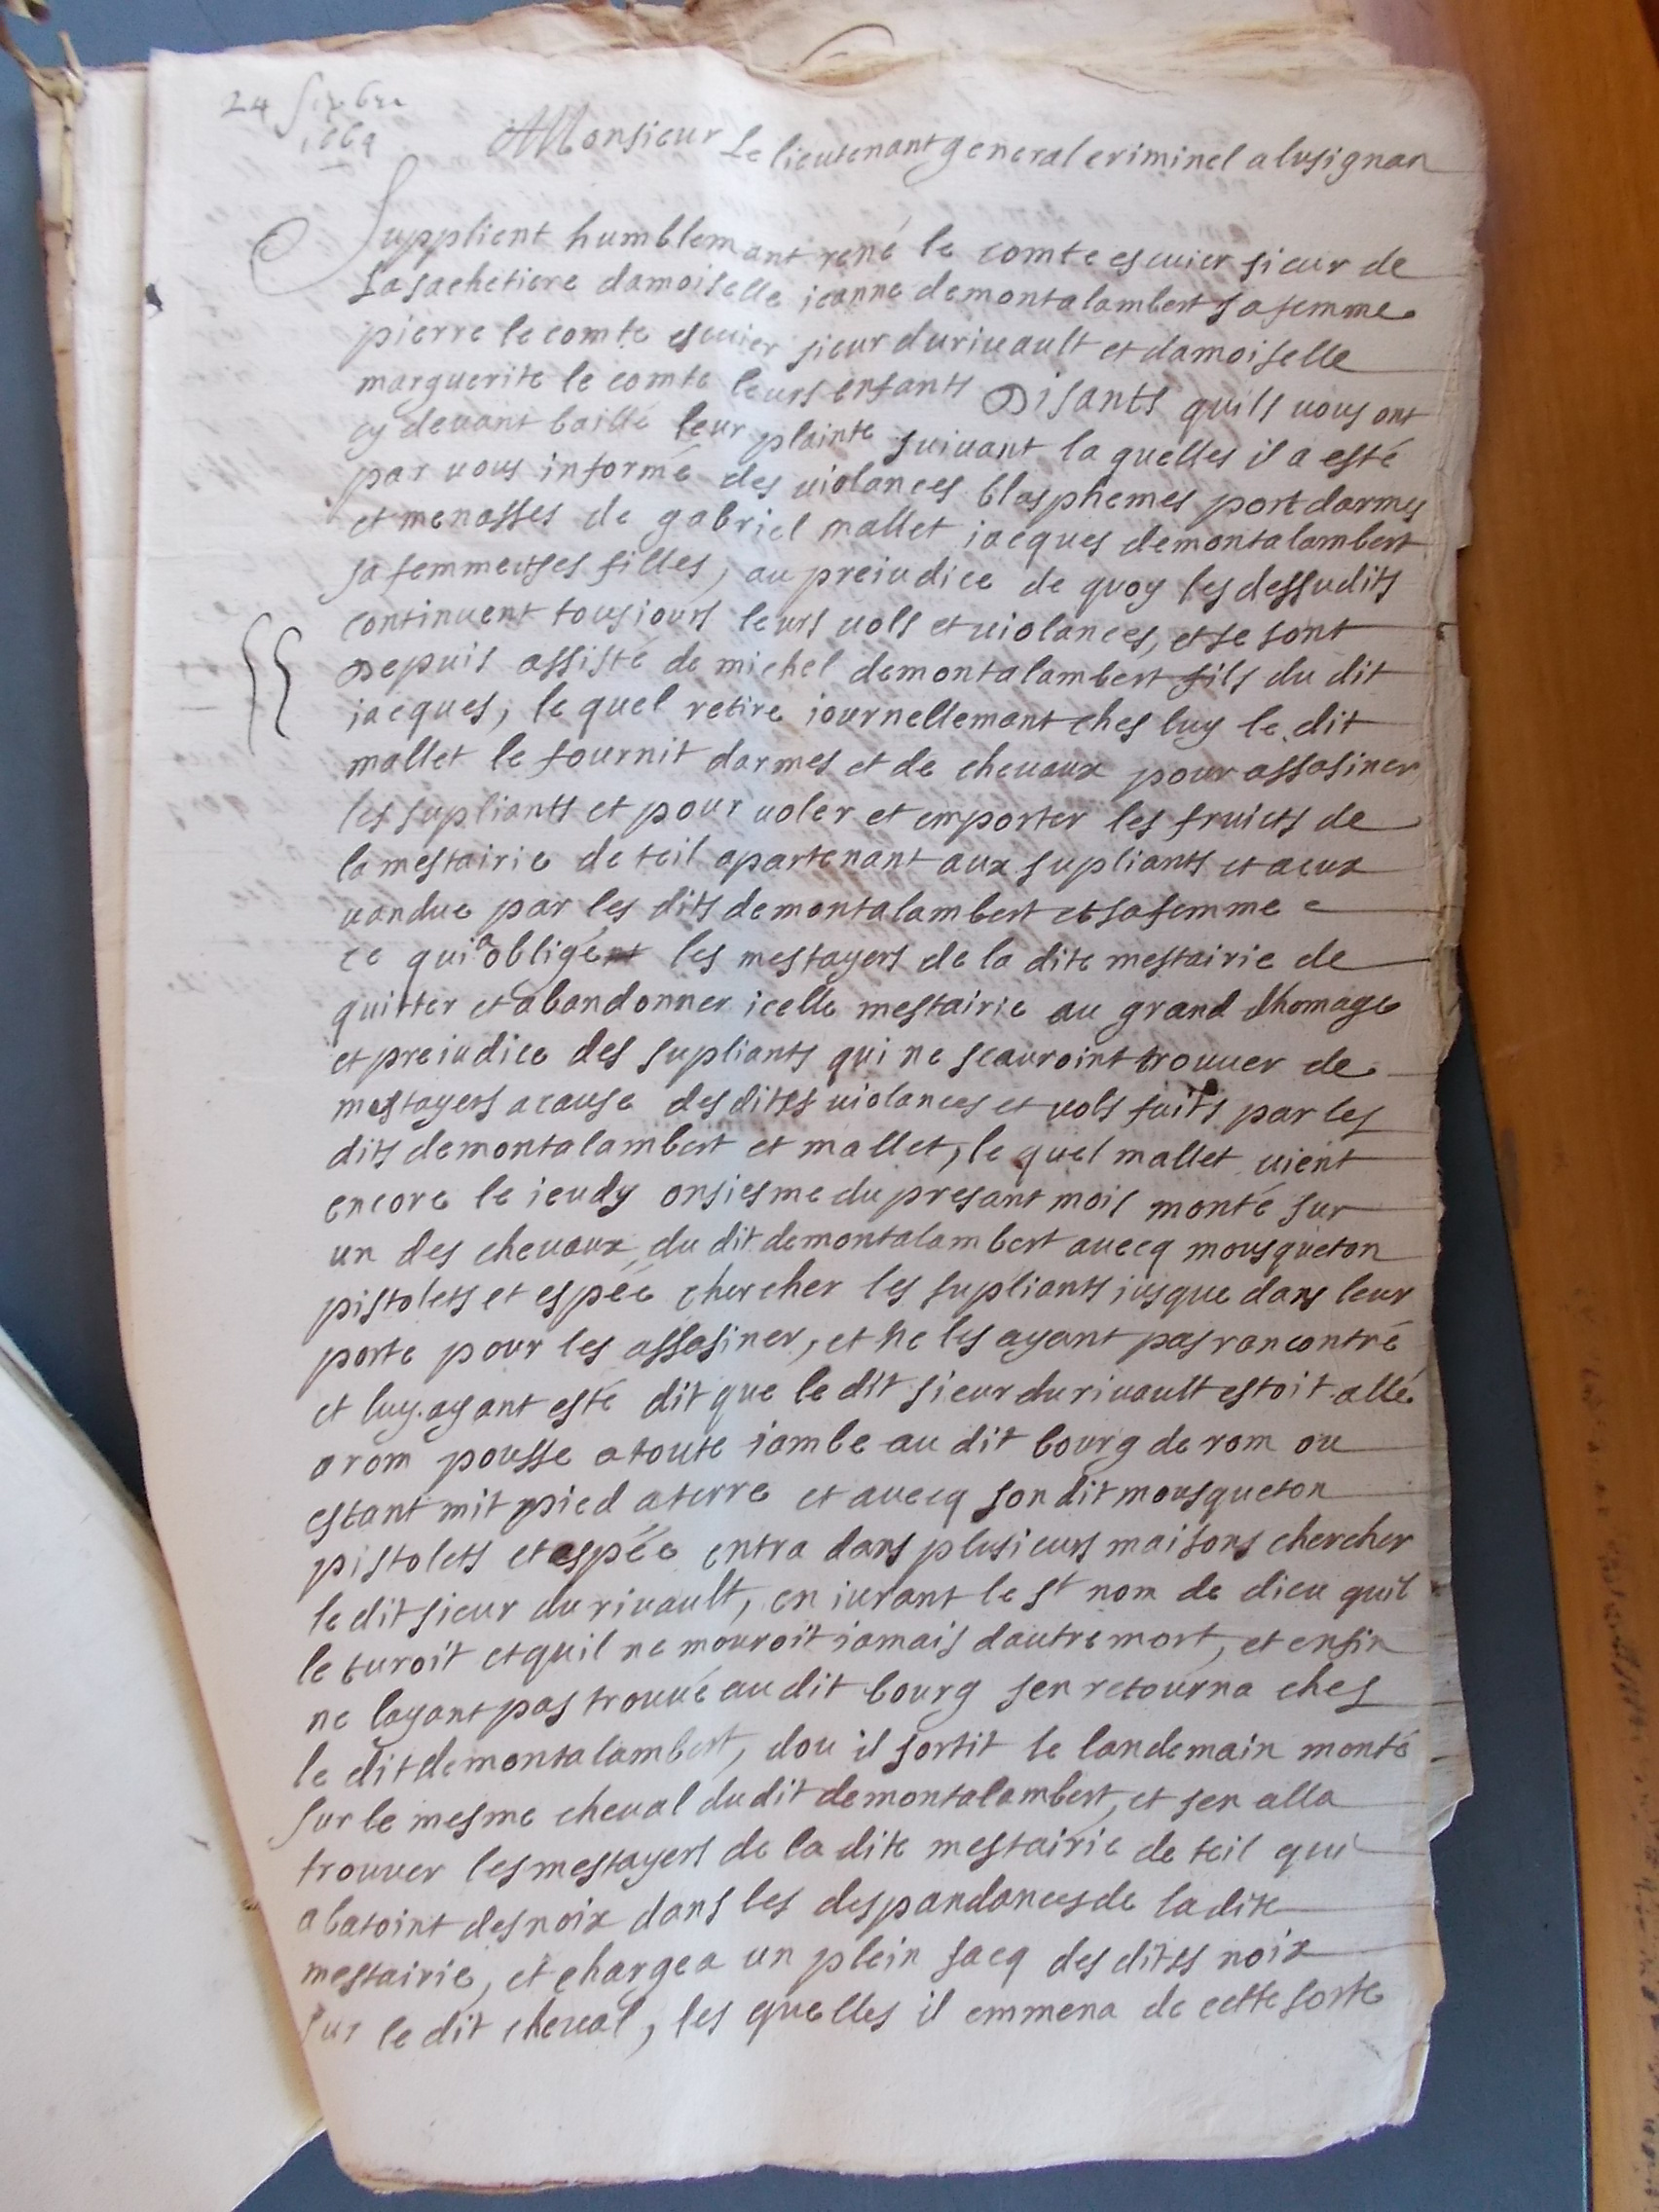 24
Monsieur Le lieutenant general criminel a lusignan
Supplient humblemant rené le comte escuier sieur de
Lasachetiere damoiselle jeanne demontalambert sa femme
pierre le comte escuier sieur durivault et damoiselle
marguerite le comte leurs enfants Disants quils vous ont
cy devant baillé leur plainte suivant la quelles il a esté
par vous informé des violances blasphemes port darmes
et menasses de gabriel mallet iacques demontalambert
sa femme et ses filles, au preiudice de quoy les dessudits
continuent tousiours leurs vols et violances, et se sont
Depuis assisté de michel demontalambert fils du dit
iacques, le quel retire iournellemant ches luy le dit
mallet le fournit darmes et de chevaux pour assasiner
les supliants et pour voler et emporter les fruicts de
la mestairie de teil apartenant aux supliants et a eux
vandue par les dits demontalambert et sa femme
ce qui a obligé les mestayers de la dite mestairie de
quitter et abandonner icelle mestairie au grand dhomage
et preiudice des supliants qui ne scauroint trouver de
mestayers a cause des dittes violances et vols faits par les
dits demontalambert et mallet, le quel mallet vient
encore le ieudy onsiesme du presant mois monté sur
un des chevaux du dit demontalambert avecq mousqueton
pistolets et espée chercher les supliants iusque dans leur
porte pour les assasiner, et ne les ayant pas rancontré
et luy ayant esté dit que le dit sieur durivault estoit allé
a rom pousse a toute iambe au dit bourg de rom ou
estant mit pied a terre et avecq son dit mousqueton
pistolets et espée entra dans plusieurs maisons chercher
le dit sieur du rivault, en iurant le st nom de dieu quil
le turoit et quil ne mouroit iamais dautre mort, et enfin
ne layant pas trouvé au dit bourg sen retourna ches
le dit demontalambert, dou il sortit le landemain monté
sur le mesme cheval dudit demontalambert, et sen alla
trouver les mestayers de la dite mestairie de teil qui
abatoint des noix dans les despandances de la dite
mestairie, et chargea un plein sacq des dittes noix
sur le dit cheval, les quelles il emmena de cette sorte